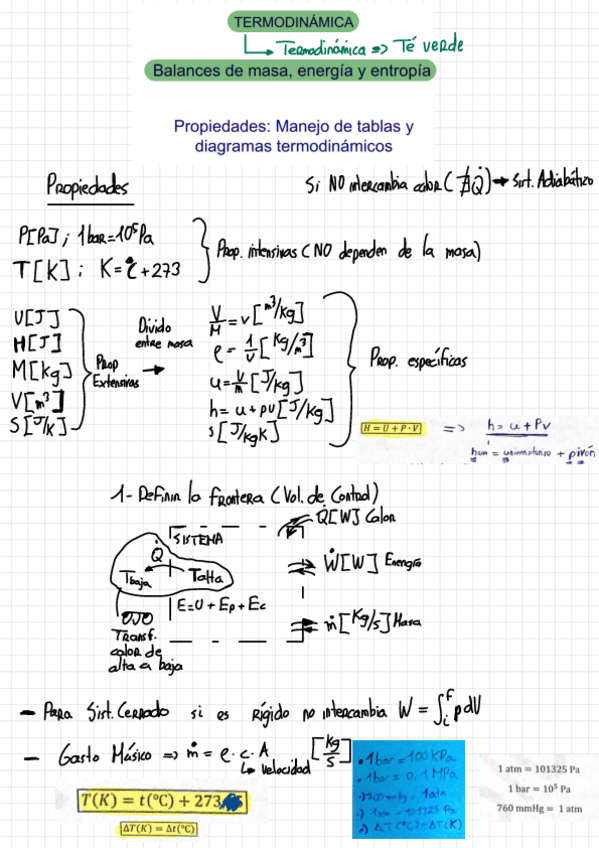 TERMODINÁMICA
Termodinámica => Té verde
Balances de masa, energía y entropía
Propiedades: Manejo de tablas y
diagramas termodinámicos
Propiedades
Si NO intercambia calor (∄Q̇) → Sist. Adiabático
P[Pa] ; 1 bar = 10⁵ Pa
T[K] ; K = °C + 273
Prop. intensivas (NO dependen de la masa)
U[J]
H[J]
M[Kg]
V[m³]
S[J/K]
Prop
Extensivas
Divido
entre masa
V/M = v[m³/Kg]
ρ = 1/v [Kg/m³]
u = U/m [J/Kg]
h = u + pv [J/Kg]
s[J/KgK]
Prop. específicas
H = U + P · V
=> h = u + Pv
1- Definir la frontera (Vol. de Control)
SISTEMA
Q̇
Tbaja
Talta
E = U + Ep + Ec
OJO
Transf.
calor de
alta a baja
Q̇[W] Calor
Ẇ[W] Energía
ṁ[Kg/s] Masa
- Para Sist. Cerrado si es rígido no intercambia W = ∫ᵢᶠ pdV
- Gasto Másico => ṁ = ρ · c · A [Kg/s]
velocidad
T(K) = t(°C) + 273
ΔT(K) = Δt(°C)
1 bar = 100 KPa
1 bar = 0,1 MPa
1 atm = 101325 Pa
ΔT(°C) = ΔT(K)
1 atm = 101325 Pa
1 bar = 10⁵ Pa
760 mmHg = 1 atm